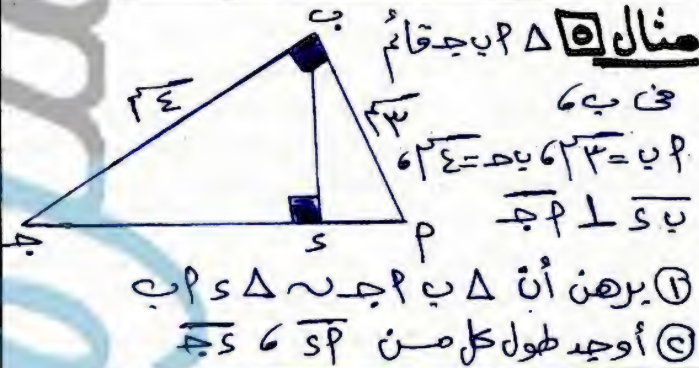 مثال ٥ △ ٢ ب جـ قائم
فى ب ،
٢ ب = ٣سم ، ب جـ = ٤سم ،
ب د ⊥ ٢ جـ
① برهن أن △ ب ٢ جـ ~ △ د ٢ ب
② أوجد طول كل من ٢ د ، د جـ
ب
٤سم
٣سم
جـ
د
٢